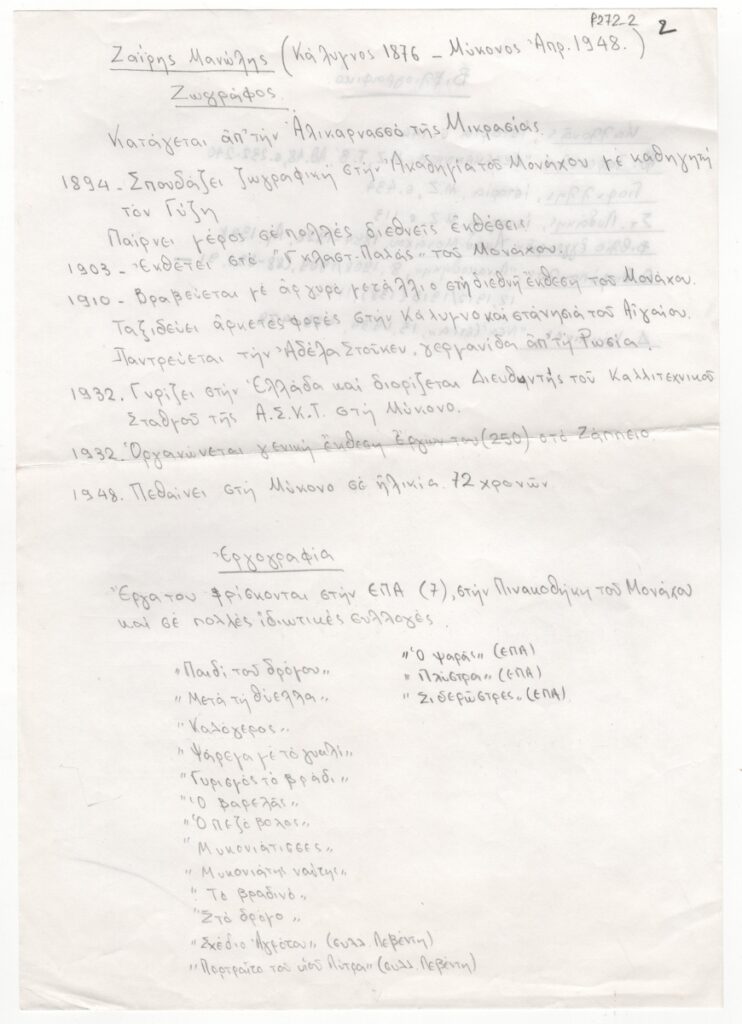 P272-2 2
Ζαΐρης Μανώλης (Κάλυμνος 1876 – Μύκονος Ἀπρ. 1948.)
Ζωγράφος.
Κατάγεται ἀπ' τήν Ἁλικαρνασσό τῆς Μικρασίας.
1894 - Σπουδάζει ζωγραφική στήν Ἀκαδημία τοῦ Μονάχου μέ καθηγητή
τόν Γύζη
Παίρνει μέρος σέ πολλές διεθνεῖς ἐκθέσεις.
1903 - Ἐκθέτει στό "Γκλαστ-Παλάς" τοῦ Μονάχου.
1910 - Βραβεύεται μέ ἀργυρό μετάλλιο στή διεθνῆ ἔκθεση τοῦ Μονάχου.
Ταξιδεύει ἀρκετές φορές στήν Κάλυμνο καί στά νησιά τοῦ Αἰγαίου.
Παντρεύεται τήν Ἀδέλα Στοῖκεν, γερμανίδα ἀπ' τή Ρωσία.
1932. Γυρίζει στήν Ἑλλάδα καί διορίζεται Διευθυντής τοῦ Καλλιτεχνικοῦ
Σταθμοῦ τῆς Α.Σ.Κ.Τ. στή Μύκονο.
1932. Ὀργανώνεται γενική ἔκθεση ἔργων του (250) στό Ζάππειο
1948. Πεθαίνει στή Μύκονο σέ ἡλικία 72 χρονῶν
Ἐργογραφία
Ἔργα του βρίσκονται στήν ΕΠΑ (7), στήν Πινακοθήκη τοῦ Μονάχου
καί σέ πολλές ἰδιωτικές συλλογές.
"Παιδί τοῦ δρόμου"
"Μετά τή θύελλα"
"Καλόγερος"
"Ψάρεμα μέ τό γυαλί"
"Γυρισμός τό βράδι"
"Ὁ βαρελᾶς"
"Ὁ πεζόβολος"
"Μυκονιάτισσες"
"Μυκονιάτης ναύτης"
"Τό βραδινό"
"Στό δρόμο"
"Σχέδιο Ἀγρότου" (συλλ. Λεβέντη)
"Πορτραῖτο τοῦ υἱοῦ Λύτρα" (συλλ. Λεβέντη)
"Ὁ ψαράς" (ΕΠΑ)
"Πλύστρα" (ΕΠΑ)
"Σιδερώστρες" (ΕΠΑ)